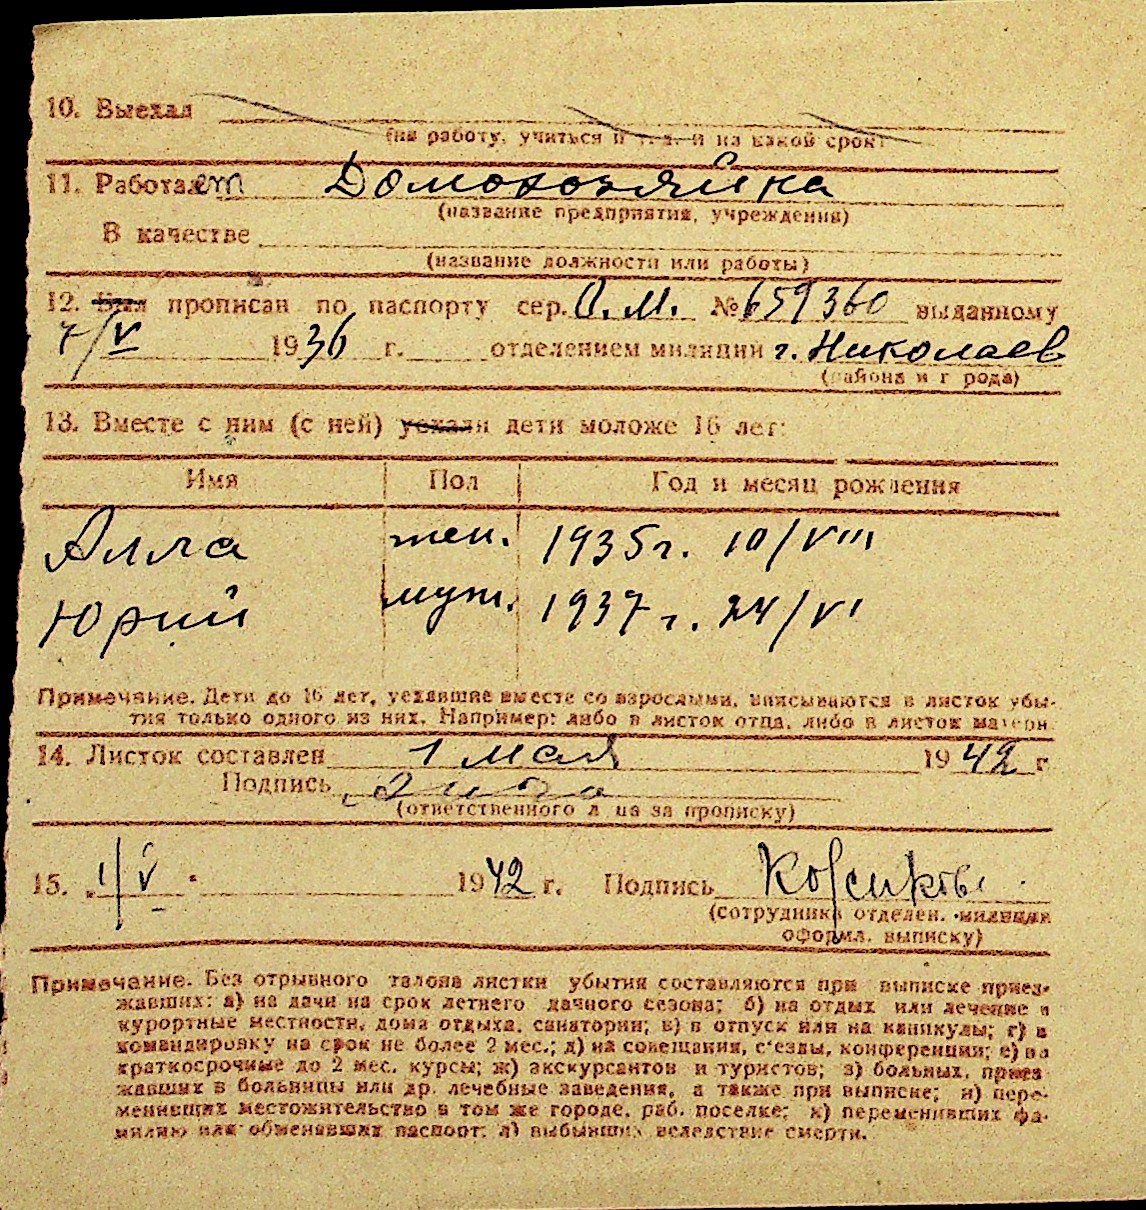 10. Выехал
(на работу, учиться и т. д. и на какой срок)
11. Работает Домохозяйка
(название предприятия, учреждения)
В качестве
(название должности или работы)
12. Был прописан по паспорту сер. О.М. № 659360 выданному
7/V 1936 г. отделением милиции г. Николаев
(района и города)
13. Вместе с ним (с ней) уехали дети моложе 16 лет:
Имя Пол Год и месяц рождения
Алла жен. 1935 г. 10/VIII
Юрий муж. 1937 г. 24/VI
Примечание. Дети до 16 лет, уехавшие вместе со взрослыми, вписываются в листок убы-
тия только одного из них. Например: либо в листок отца, либо в листок матери
14. Листок составлен 1 мая 1942 г
Подпись
(ответственного лица за прописку)
15. 1/V 1942 г. Подпись
(сотрудника отделен. милиции
оформл. выписку)
Примечание. Без отрывного талона листки убытия составляются при выписке приез-
жавших: а) на дачи на срок летнего дачного сезона; б) на отдых или лечение в
курортные местности, дома отдыха, санатории; в) в отпуск или на каникулы; г) в
командировку на срок не более 2 мес.; д) на совещания, с'езды, конференции; е) на
краткосрочные до 2 мес. курсы; ж) экскурсантов и туристов; з) больных, приез-
жавших в больницы или др. лечебные заведения, а также при выписке; и) пере-
менивших местожительство в том же городе, раб. поселке; к) переменивших фа-
милию или обменявших паспорт; л) выбывших вследствие смерти.